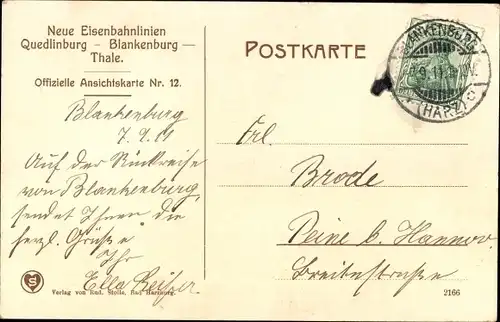 Neue Eisenbahnlinien
Quedlinburg – Blankenburg —
Thale.
Offizielle Ansichtskarte Nr. 12.
POSTKARTE
BLANKENBURG
(HARZ)
Blankenburg
7.9.11
Auf der Rückreise
von Blankenburg,
sendet Ihnen die
herzl. Grüße
Ihr
Ella
Frl.
Brode
Peine b. Hannov.
Breitestraße
S
Verlag von Rud. Stolle, Bad Harzburg.
2166